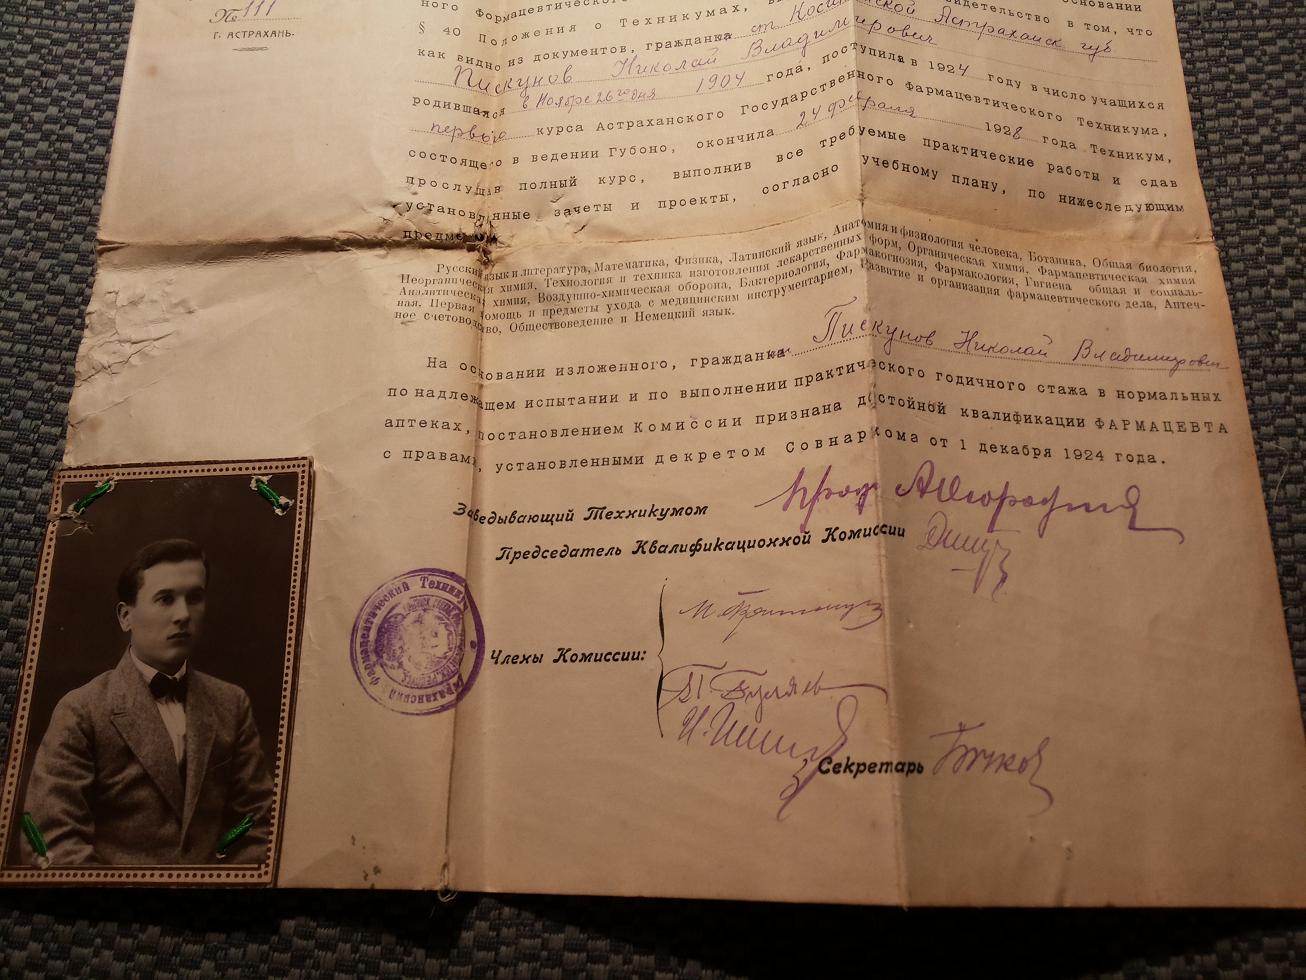 № 111
г. АСТРАХАНЬ.
ного Фармацевтического
основании
§ 40 Положения о Техникумах,
свидетельство в том, что
как видно из документов, гражданка ст. Астраханск губ
Пискунов Николай Владимирович
родившаяся в Ноябре 26го дня 1904 года, поступила в 1924 году в число учащихся
первого курса Астраханского Государственного Фармацевтического Техникума,
состоящего в ведении Губоно, окончила 24 февраля 1928 года Техникум,
прослушав полный курс, выполнив все требуемые практические работы и сдав
установленные зачеты и проекты, согласно учебному плану, по нижеследующим
предме
Русский язык и литература, Математика, Физика, Латинский язык, Анатомия и физиология человека, Ботаника, Общая биология,
Неорганическая химия, Технология и техника изготовления лекарственных форм, Органическая химия, Фармацевтическая химия
Аналитическая химия, Воздушно-химическая оборона, Бактериология, Фармакогнозия, Фармакология, Гигиена общая и социаль-
ная. Первая помощь и предметы ухода с медицинским инструментарием, Развитие и организация фармацевтического дела, Аптеч-
ное счетоводство, Обществоведение и Немецкий язык.
На основании изложенного, гражданка Пискунов Николай Владимирович
по надлежащем испытании и по выполнении практического годичного стажа в нормальных
аптеках, постановлением Комиссии признана достойной квалификации ФАРМАЦЕВТА
с правами, установленными декретом Совнаркома от 1 декабря 1924 года.
Заведывающий Техникумом проф
Председатель Квалификационной Комиссии
Фармацевтический Техникум
Члены Комиссии:
Секретарь Бычков